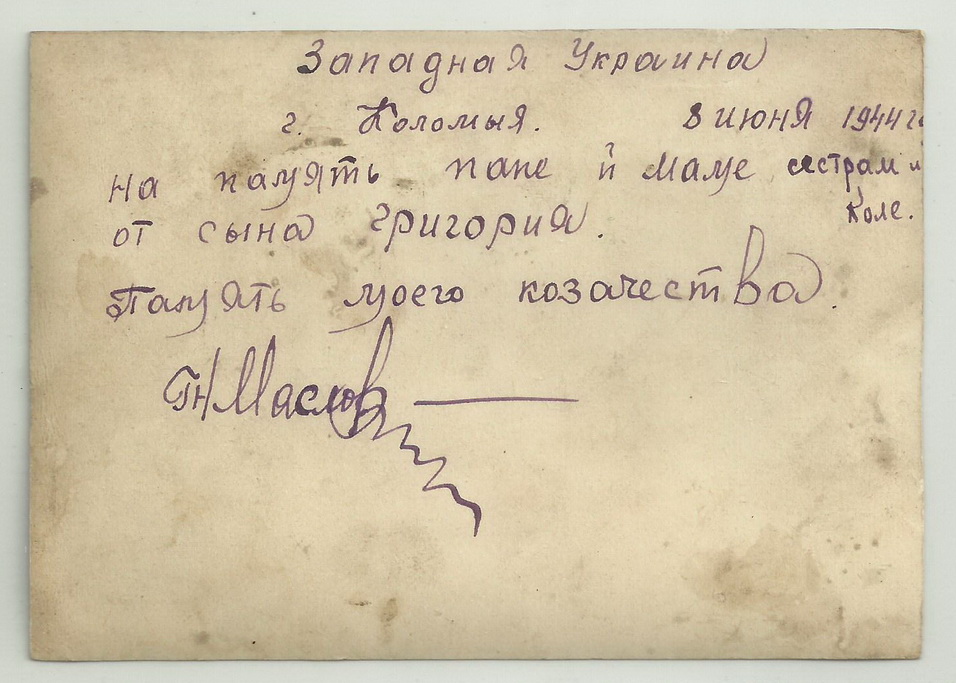 Западная Украина
г. Коломыя. 8 июня 1944 г.
на память папе и маме сестрам и
Коле.
от сына Григория.
Память моего козачества.
ГН Маслов